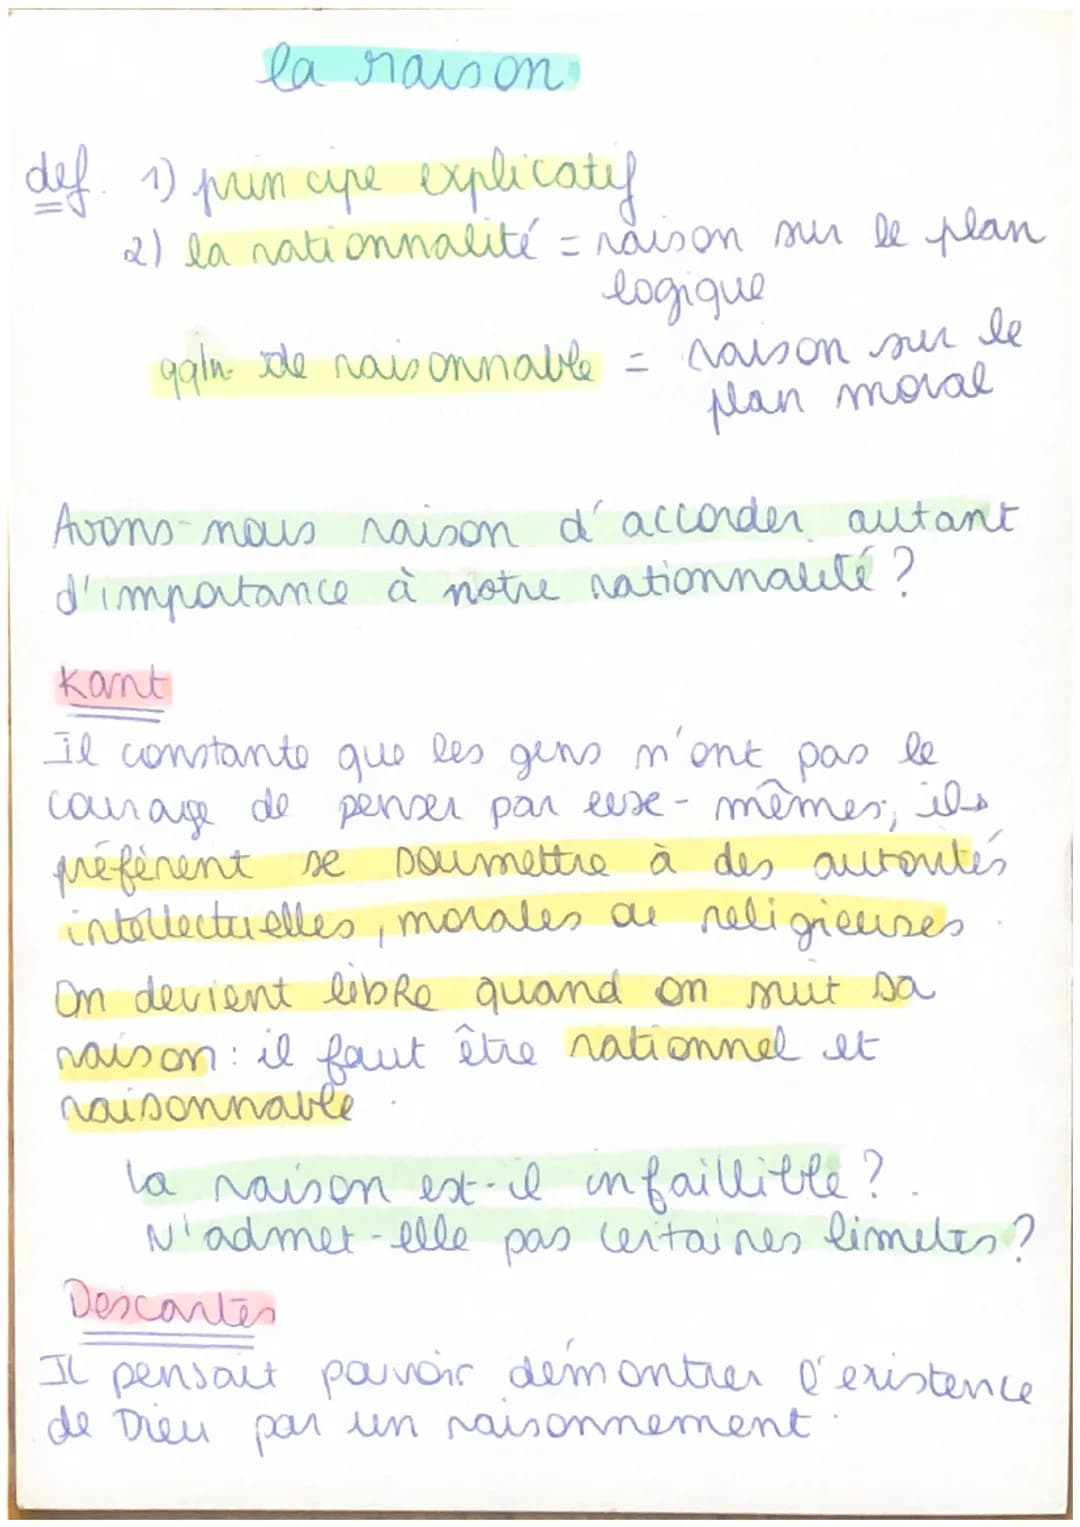 la raison
def. 1) principe explicatif
2) la rationnalité = raison sur le plan
logique
qqln de raisonnable = raison sur le
plan moral
Avons-nous raison d'accorder autant
d'importance à notre rationnalité ?
Kant
Il constante que les gens n'ont pas le
courage de penser par eux-mêmes, ils
préfèrent se soumettre à des autorités
intellectuelles, morales ou religieuses.
On devient libre quand on suit sa
raison : il faut être rationnel et
raisonnable.
la raison est-il infaillible ?
N'admet-elle pas certaines limetes ?
Descartes
Il pensait pouvoir démontrer l'existence
de Dieu par un raisonnement.